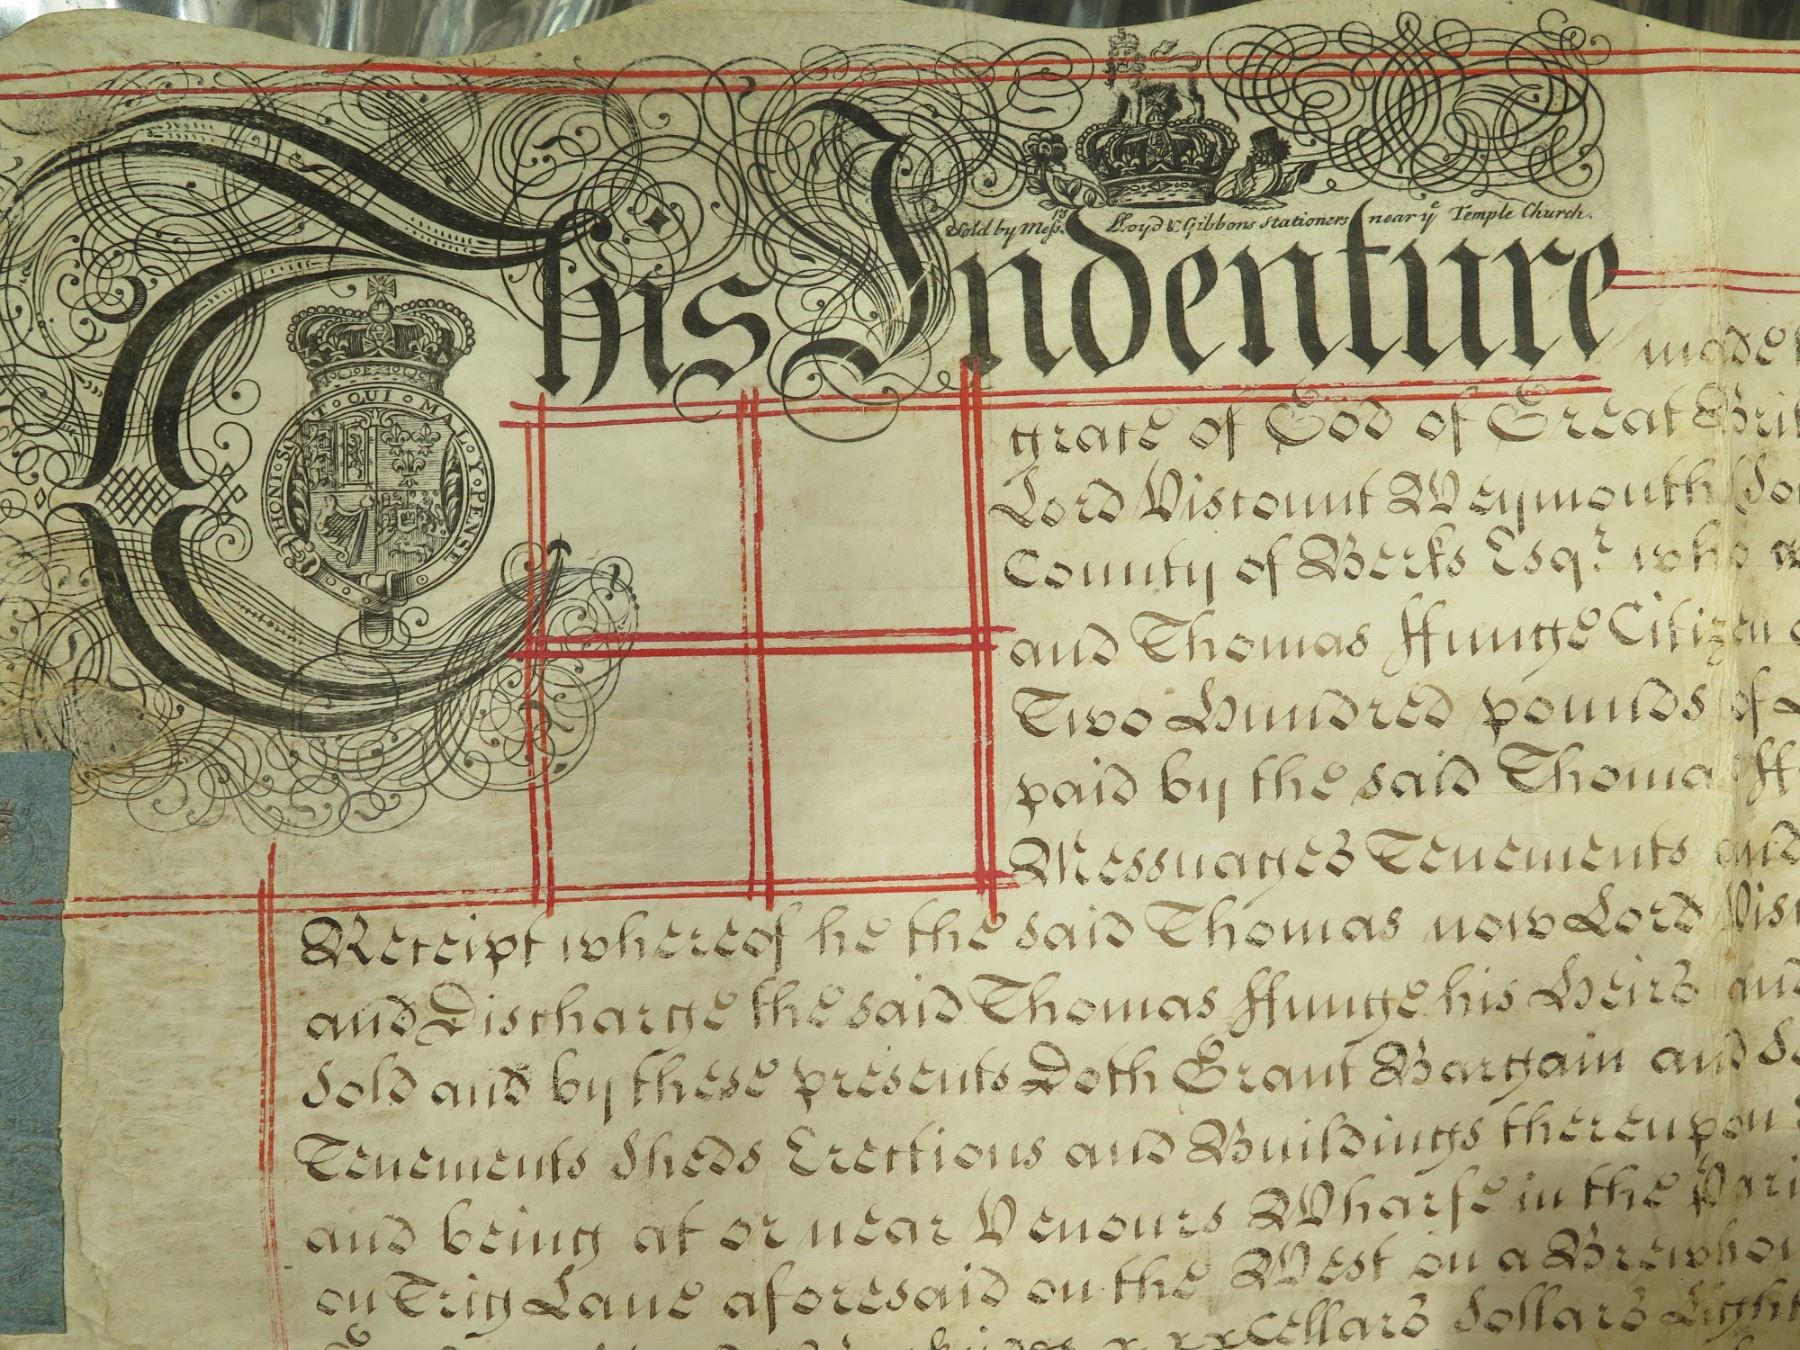 Sold by Messrs. Lloyd & Gibbons Stationers near ye Temple Church.
This Indenture made
HONI SOIT QUI MAL Y PENSE
grace of God of Great Brit
Lord Viscount Weymouth
County of Berks Esqr. who
and Thomas Ffunge Citizen
Two Hundred pounds of
paid by the said Thomas
Messuages Tenements and
Receipt whereof he the said Thomas now Lord Vis
and Discharge the said Thomas Ffunge his Heirs and
Sold and by these presents Doth Grant Bargain and
Tenements Sheds Erections and Buildings thereupon
and being at or near Venours Wharfe in the Pari
on Trig Lane aforesaid on the West on a Brewhou
Cellars Sollars Light